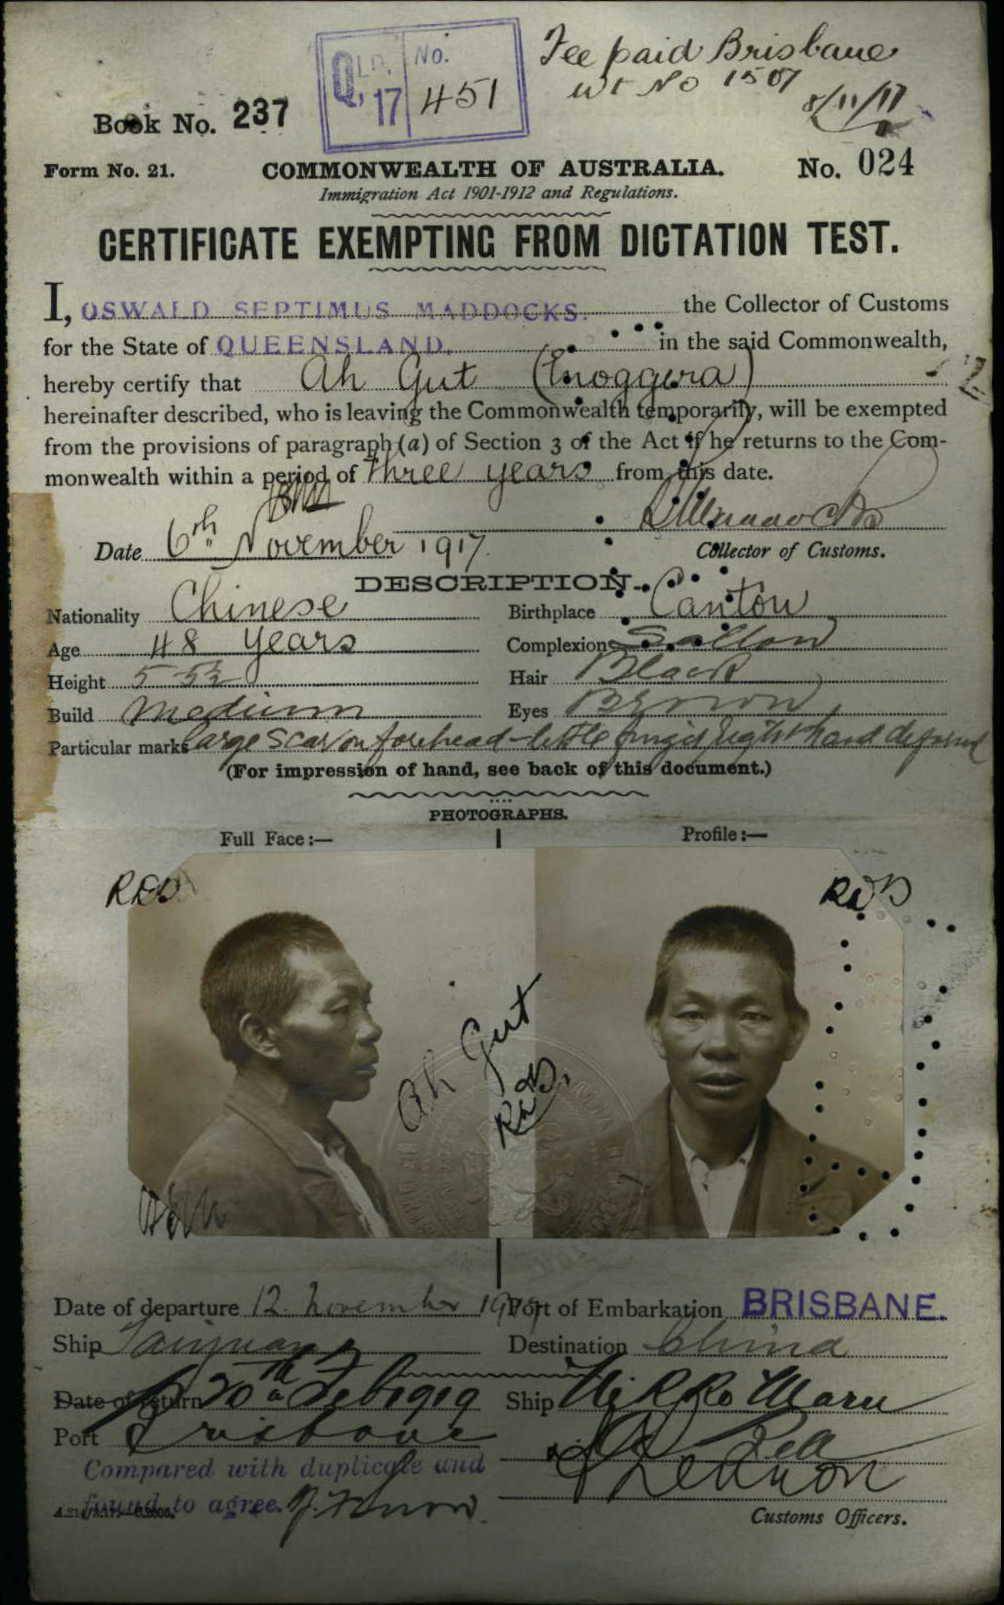 QLD. 17 No. 451
Fee paid Brisbane
8/11/17
Book No. 237
Form No. 21. COMMONWEALTH OF AUSTRALIA. No. 024
Immigration Act 1901-1912 and Regulations.
CERTIFICATE EXEMPTING FROM DICTATION TEST.
I, OSWALD SEPTIMUS MADDOCKS. the Collector of Customs
for the State of QUEENSLAND, in the said Commonwealth,
hereby certify that Ah Gut (Enoggera)
hereinafter described, who is leaving the Commonwealth temporarily, will be exempted
from the provisions of paragraph (a) of Section 3 of the Act if he returns to the Com-
monwealth within a period of three years from this date.
Date 6th November 1917.
Collector of Customs.
DESCRIPTION.
Nationality Chinese Birthplace Canton
Age 48 years Complexion Sallow
Height 5 5½ Hair Black
Build Medium Eyes Brown
Particular marks large scar on forehead - little finger right hand deformed
(For impression of hand, see back of this document.)
PHOTOGRAPHS.
Full Face:— Profile:—
Ah Gut
Date of departure 12 November 1917 Port of Embarkation BRISBANE.
Ship Taiyuan Destination China
Date of return 20th Feb 1919 Ship Nikko Maru
Port Brisbane
Compared with duplicate and
found to agree.
Customs Officers.